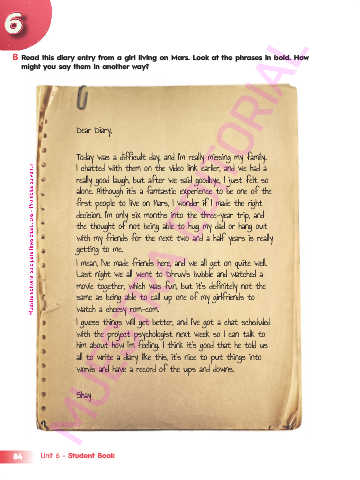 6
B Read this diary entry from a girl living on Mars. Look at the phrases in bold. How
might you say them in another way?
Dear Diary,
Today was a difficult day, and I'm really missing my family.
I chatted with them on the video link earlier, and we had a
really good laugh, but after we said goodbye, I just felt so
alone. Although it's a fantastic experience to be one of the
first people to live on Mars, I wonder if I made the right
decision. I'm only six months into the three-year trip, and
the thought of not being able to hug my dad or hang out
with my friends for the next two and a half years is really
getting to me.
I mean, I've made friends here, and we all get on quite well.
Last night we all went to Dhruv's bubble and watched a
movie together, which was fun, but it's definitely not the
same as being able to call up one of my girlfriends to
watch a cheesy rom-com.
I guess things will get better, and I've got a chat scheduled
with the project psychologist next week so I can talk to
him about how I'm feeling. I think it's good that he told us
all to write a diary like this, it's nice to put things into
words and have a record of the ups and downs.
Shay
84 Unit 6 - Student Book